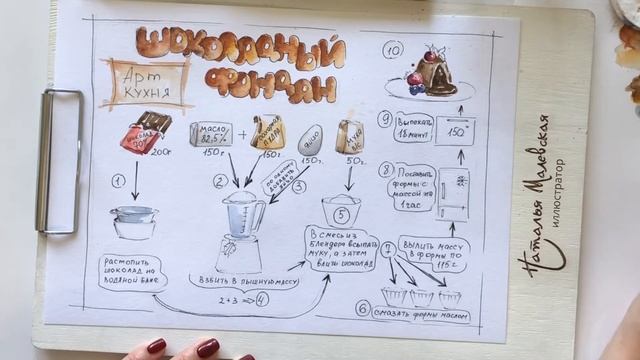 ШОКОЛАДНЫЙ
ФОНДАН
АРТ
КУХНЯ
200г
МАСЛО
82,5%
150г.
+
САХАРНАЯ
ПУДРА
150г.
ЯЙЦО
150г.
МУКА
50г.
1
РАСТОПИТЬ
ШОКОЛАД НА
ВОДЯНОЙ БАНЕ
2
ПО ОДНОМУ
ДОБАВИТЬ
ЯЙЦО
3
ВЗБИТЬ В ПЫШНУЮ МАССУ
2+3 ⇒ 4
5
В СМЕСЬ ИЗ
БЛЕНДЕРА ВСЫПАТЬ
МУКУ, А ЗАТЕМ
ВЛИТЬ ШОКОЛАД
6 СМАЗАТЬ ФОРМЫ МАСЛОМ
7
ВЫЛИТЬ МАССУ
В ФОРМЫ ПО
115г
8
ПОСТАВИТЬ
ФОРМЫ С
МАССОЙ НА
1 ЧАС
9
ВЫПЕКАТЬ
18 МИНУТ
150
10
Наталья Малевская
ИЛЛЮСТРАТОР